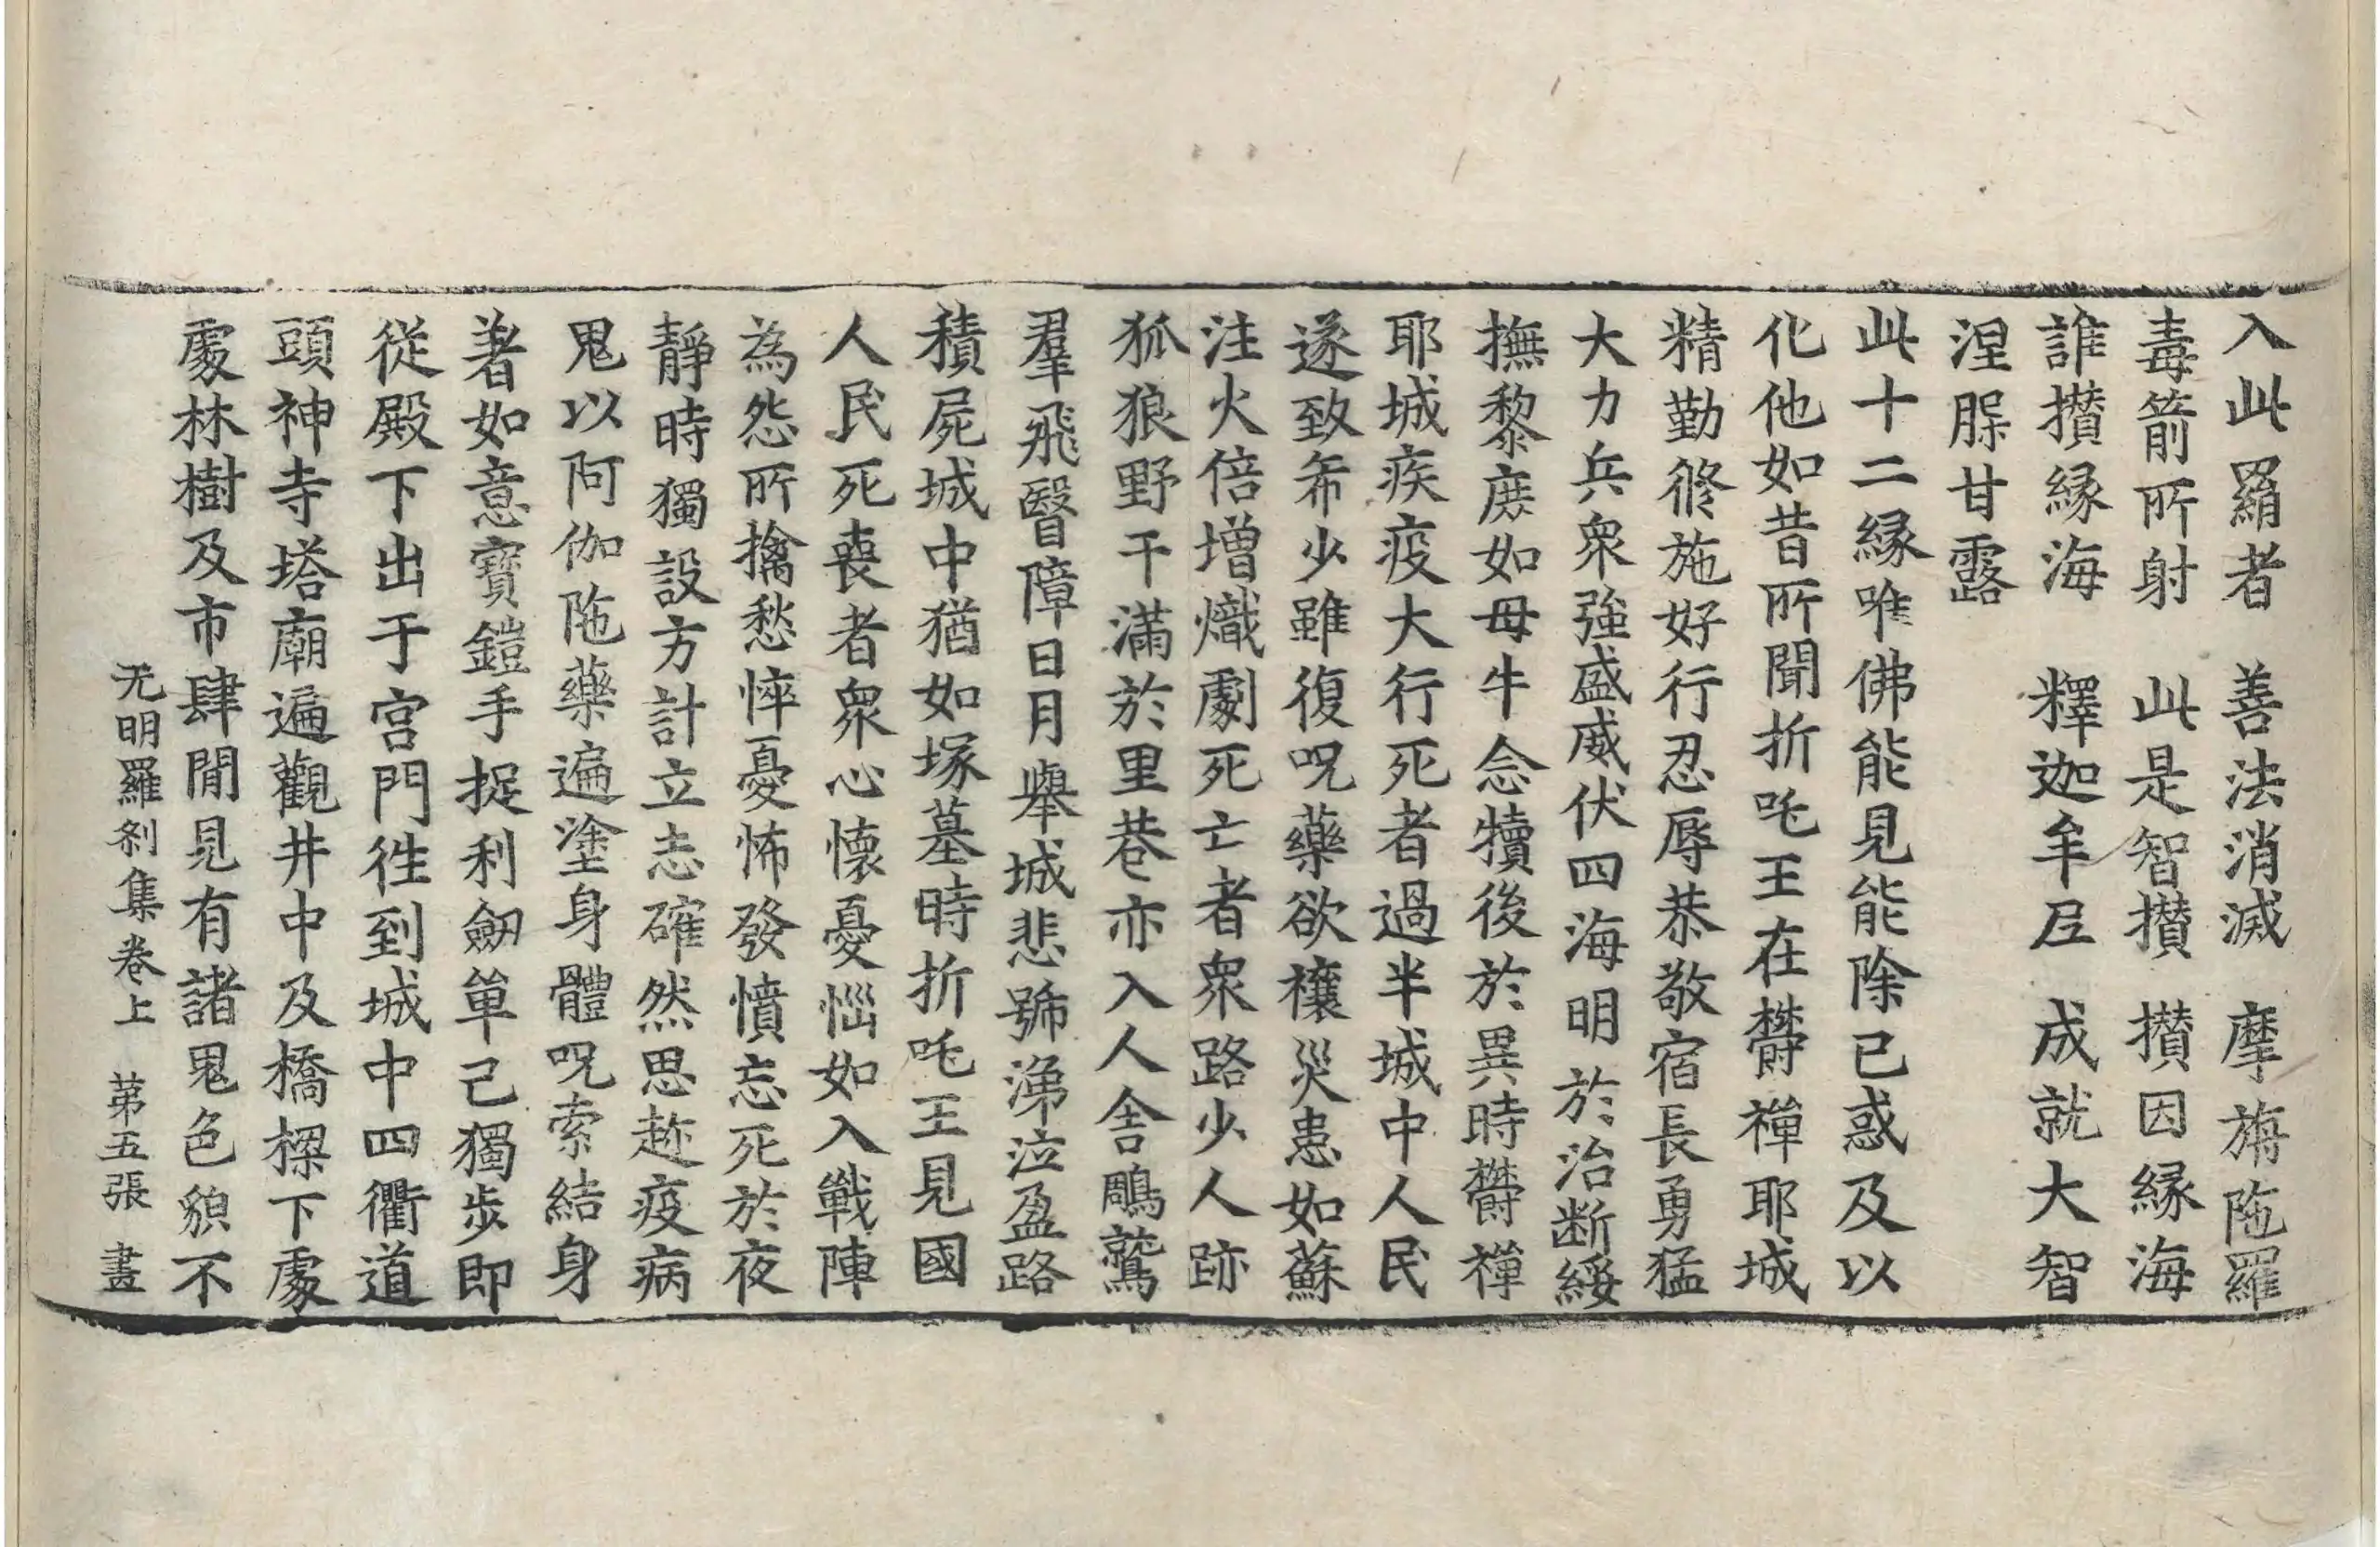 入此羂者　善法消滅　摩旃陁羅
毒箭所射　此是智攢　攢因縁海
誰攢縁海　釋迦牟𡰱　成就大智
涅脲甘露
此十二縁唯佛能見能除已惑及以
化他如昔所聞折吒王在欝禪耶城
精勤脩施好行忍辱恭敬宿長勇猛
大力兵衆強盛威伏四海明於治断綏
撫黎庶如母牛念犢後於異時欝禪
耶城疾疫大行死者過半城中人民
遂致希少雖復呪藥欲禳災患如蘇
注火倍增熾劇死亡者衆路少人跡
狐狼野干滿於里巷亦入人舍鵰鷲
羣飛翳障日月舉城悲號涕泣盈路
積屍城中猶如塚墓時折吒王見國
人民死喪者衆心懷憂惱如入戰陣
為怨所擒愁悴憂怖發憤忘死於夜
靜時獨設方計立志確然思趂疫病
鬼以阿伽陁藥遍塗身體呪索結身
著如意寶鎧手捉利劒單己獨步即
從殿下出于宮門徃到城中四衢道
頭神寺塔廟遍觀井中及橋樑下處
處林樹及市肆閒見有諸鬼色貌不
无明羅刹集卷上　苐五張　畫